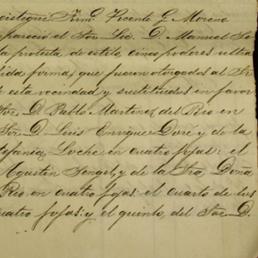 Vicente G. Moreno
pareció el Sor. Lic. D. Manuel
la protesta de estilo cinco poderes
ida forma, que fueron otorgados al Sr.
esta vecindad y sustituidos en favor
Sor. D. Pablo Martinez del Rio en
Sor. D. Luis Enrique Dove y de la
tefania Loche en cuatro fojas: el
Agustin y de la Sra. Doña
Rio en cuatro fojas: el cuarto de los
uatro fojas: y el quinto, del Sor. D.